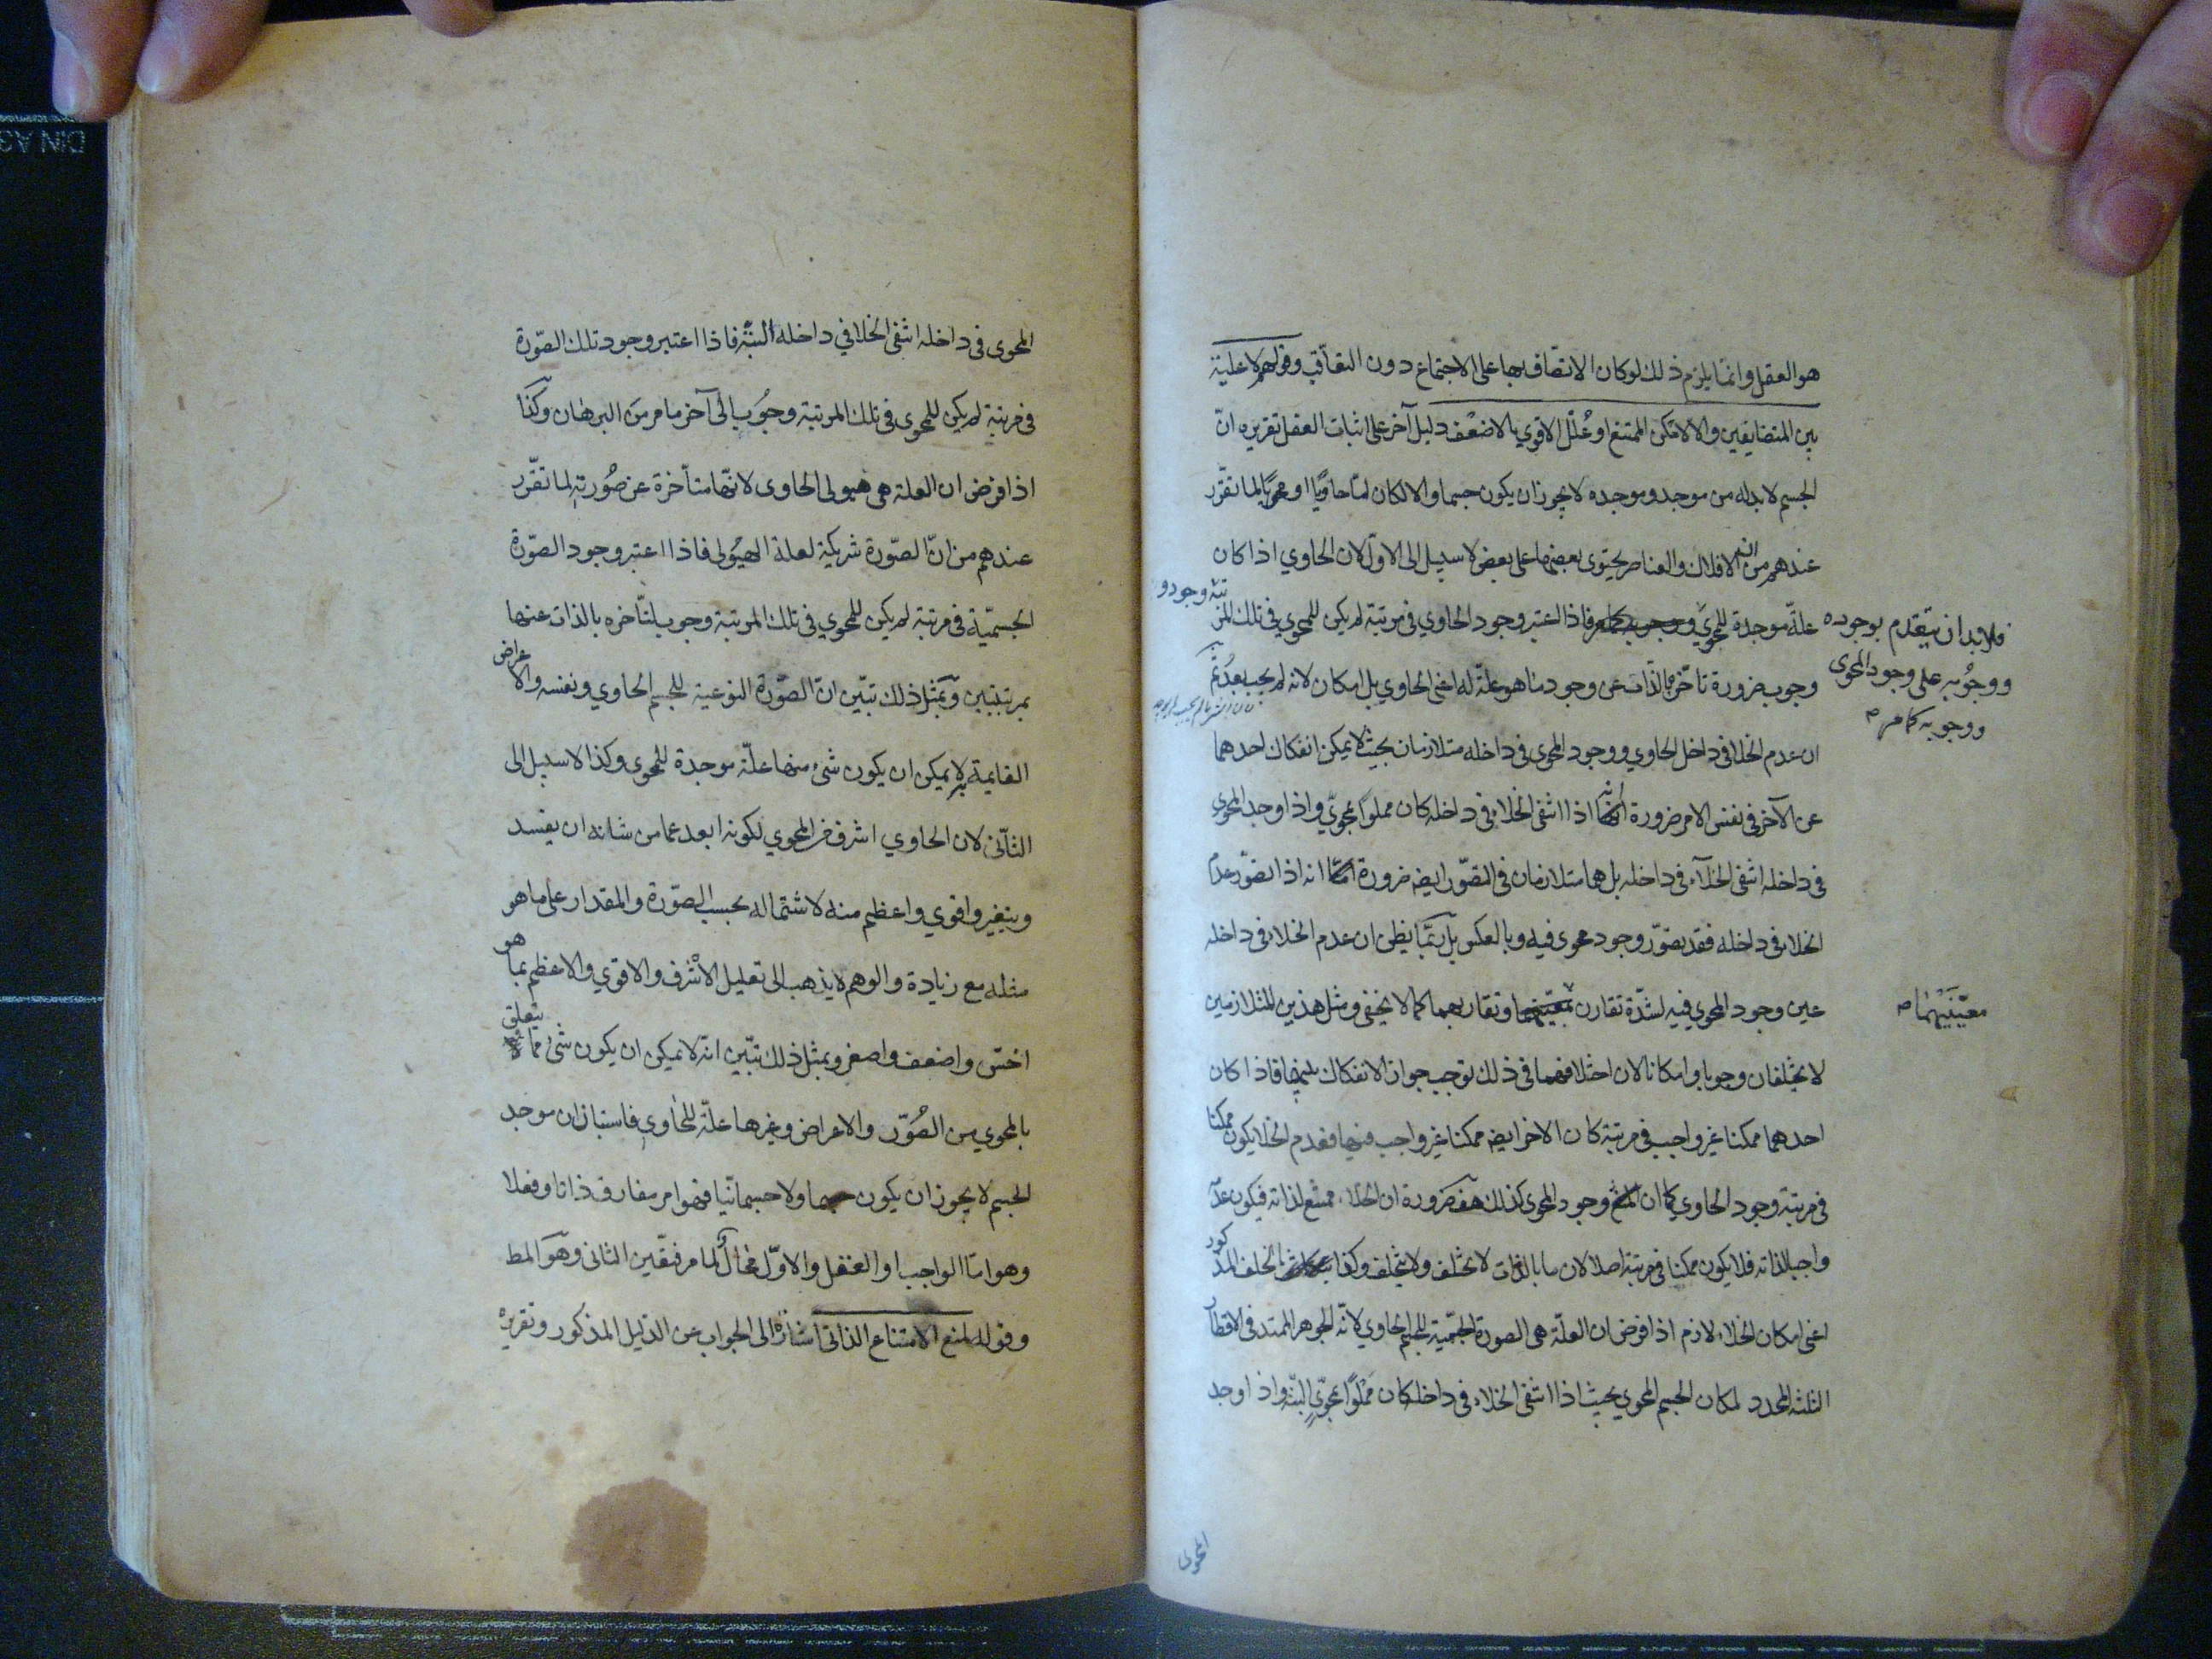 هو العقل وانما يلزم ذلك لو كان الاتصاف بها على الاجتماع دون التعاقب وقولهم لا علية
بين المتضايفين والا لامكن الممتنع او عُلّل الاقوي بالاضعف دليل آخر على اثبات العقل تقريره انّ
الجسم لابد له من موجد وموجده لا يجوز ان يكون جسما والا لكان امّا حاويًا او محويًا لما تقرّر
عندهم من ان الافلاك والعناصر يحتوى بعضها على بعض لا سبيل الى الاوّل لان الحاوي اذا كان
علّة موجدة للمحويّ فاذا اعتبر وجود الحاوي في مرتبة لم يكن للمحوي في تلك المرتبة وجود و
فلابد ان يتقدم بوجوده
ووجُوبه على وجود المحوى
ووجوبه كما مر ص
وجوب ضرورة تأخّره بالذّات عن وجود ما هو علّة له اعنى الحاوي بل امكان لانه لم يجب بعدُ ثم
ان عدم الخلا فى داخل الحاوي ووجود المحوى فى داخله متلازمان بحيث لا يمكن انفكاك احدهما
عن الآخر فى نفس الامر ضرورة انه اذا انتفى الخلاء فى داخله كان مملوًا بمحويّ واذا وجد المحوى
فى داخله انتفى الخلآء فى داخله بل هما متلازمان فى التصّور ايضه ضرورة انه اذا تصوّر عدم
الخلاء فى داخله فقد تصوّر وجود محوى فيه وبالعكس بل ربّما يظن ان عدم الخلاء فى داخله
عين وجود المحوي فيه لشدّة تقارن وتقاربهما كما لا يخفى ومثل هذين المتلازمين
معيّنيهما ص
لا يختلفان وجوبا وامكانا لان اختلافهما فى ذلك يوجب جواز الانفكاك بينهما فاذا كان
احدهما ممكنا غير واجب فى مرتبة كان الاخر ايضه ممكنا غير واجب فيها فعدم الخلا يكون ممكنا
فى مرتبة وجود الحاوي كما ان وجود المحوى كذلك هف ضرورة ان الخلاء ممتنع لذاته فيكون عدمه
واجبا لذاته فلا يكون ممكنا فى مرتبة اصلا لان ما بالذات لا يختلف ولا يتخلف وكذا الخلف المذكور
اعنى امكان الخلاء لازم اذا فرض ان العلّة هى الصورة الجسميّة للجسم الحاوي لانّه الجوهر الممتد فى الاقطار
الثلثه المحدد لمكان الجسم المحوي بحيث اذا انتفى الخلاء فى داخله كان مملوًا بمحويّ البتّه واذا وجد
المحوى
المحوى فى داخله انتفى الخلا في داخله البتّه فاذا اعتبر وجود تلك الصّورة
فى مرتبة لم يكن للمحوى فى تلك المرتبة وجُوب الى آخر ما مر من البرهان وكذا
اذا فرض ان العلة هى هيولى الحاوى لانها متأخرة عن صُورته لما تقّرر
عندهم من انّ الصّورة شريكة لعلة الهيُولى فاذا اعتبر وجود الصّورة
الجسميّة فى مرتبة لم يكن للمحوي فى تلك المرتبة وجوب لتأخره بالذات عنها
بمرتبتين وبمثل ذلك تبيّن انّ الصّورة النوعية للجسم الحاوي ونفسه والاعراض
القايمة به لا يمكن ان يكون شئ منها علّة موجدة للمحوى وكذا لا سبيل الى
الثآنى لان الحاوي اشرف من المحوي لكونه ابعد عما من شانه ان يفسد
ويتغير واقوي واعظم منه لاشتماله بحسب الصّورة والمقدار على ما هو
مثله مع زيادة والوهم لا يذهب الى تعليل الاشرف والاقوي والاعظم بما هو
اخسّ واضعف واصغر وبمثل ذلك تبّين انّه لا يمكن ان يكون شئ مما يتعلق
بالمحوي من الصُوّر والاعراض وغيرها علّة للحاوي فاستبان ان موجد
الجسم لا يجوز ان يكون جسما ولا جسمانّيا فهو امر مفارق ذاتا وفعلا
وهو امّا الواجب او العقل والاوّل محال لما مر فتعّين الثانى وهو المط
وقوله لمنع الامتناع الذاتى اشارة الى الجواب عن الدّليل المذكور وتقريره